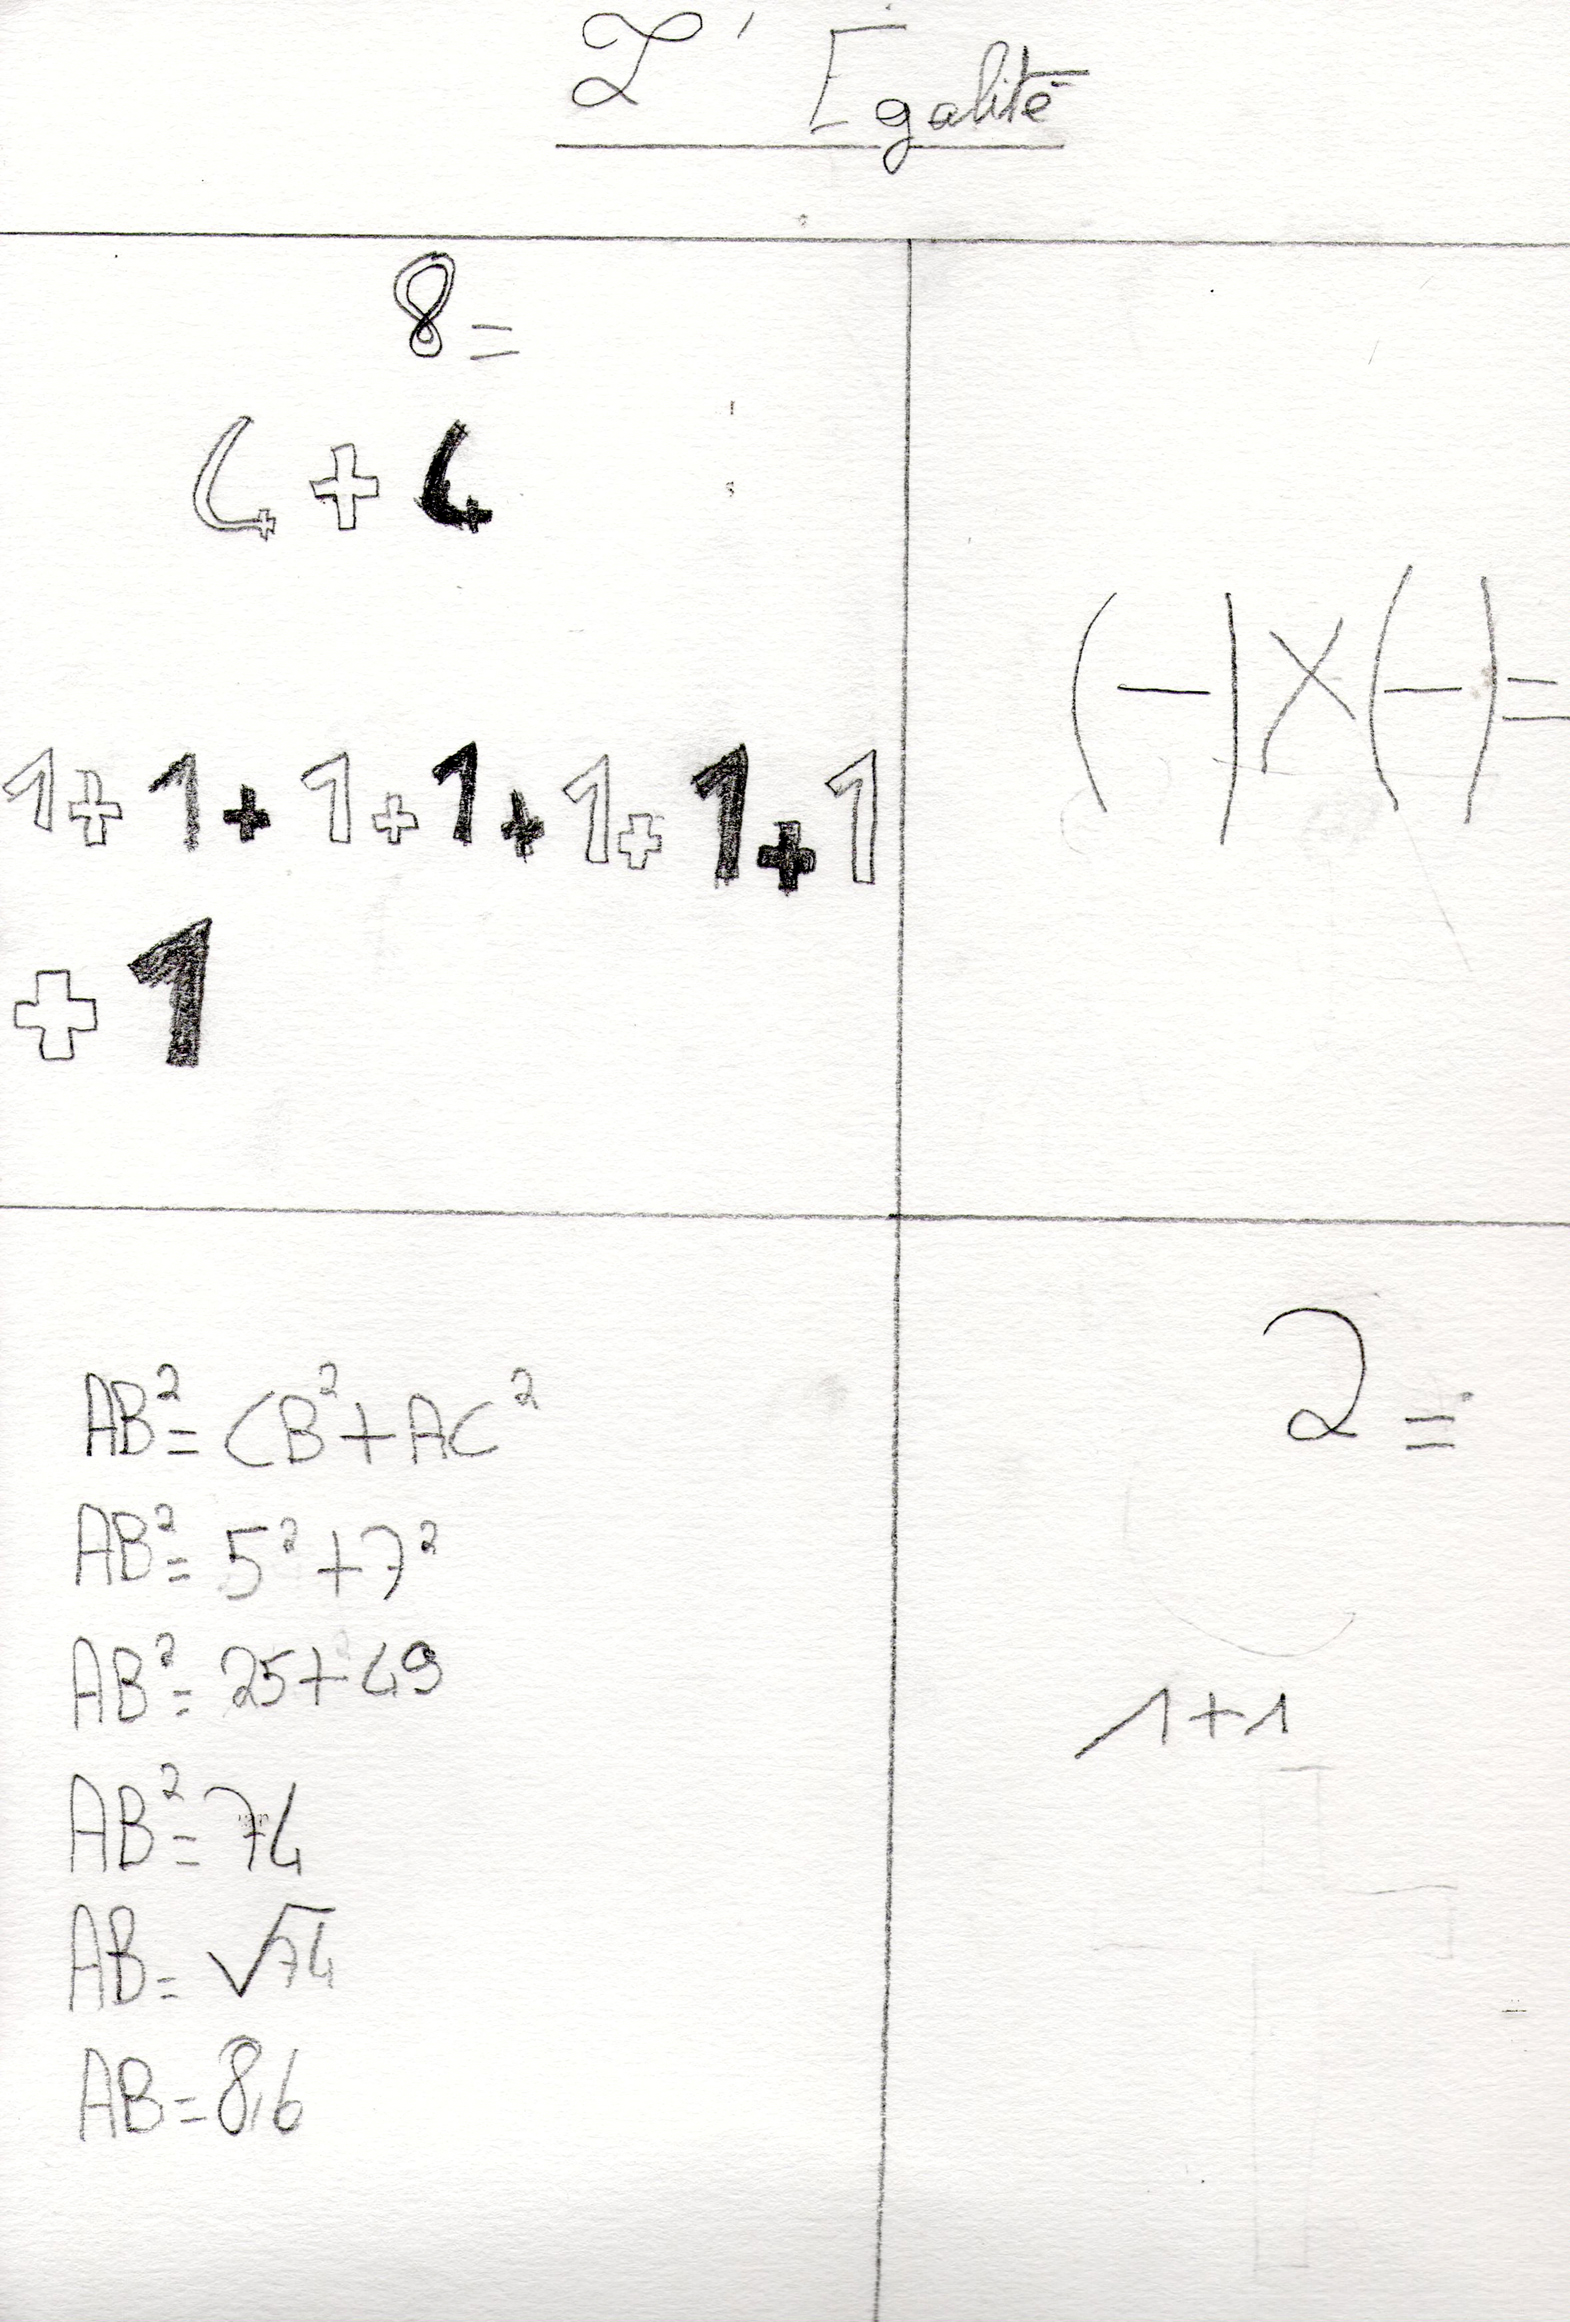 L'Egalité
8=
4+4
1+1+1+1+1+1+1
+1
(-)×(-)=
AB²=CB²+AC²
AB²=5²+7²
AB²=25+49
AB²=74
AB=√74
AB=8,6
2=
1+1